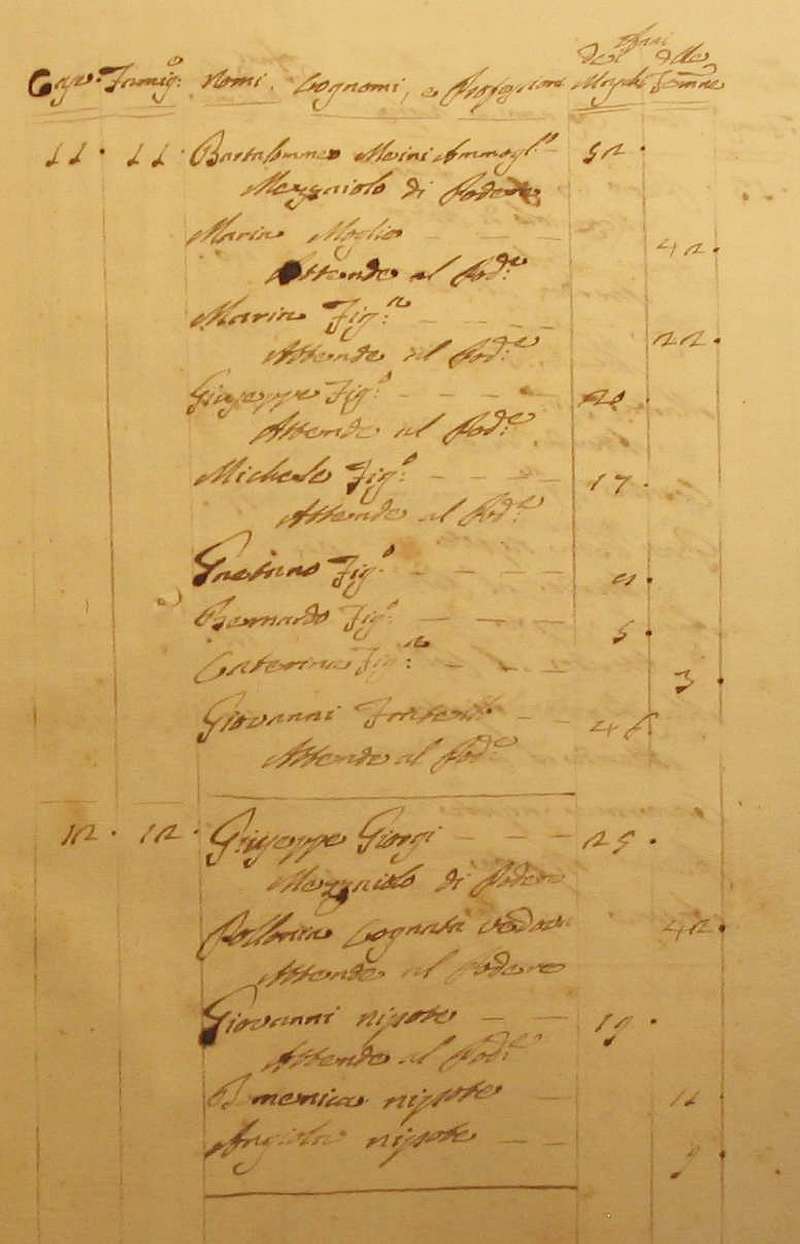 Anni
Case. Famig.e Nomi, Cognomi, e Professioni Dei Maschi delle Femine
11. 11. Bartolommeo Meini Ammogl.o 52.
Mezzaiolo di Podere
Maria Moglie 42.
Attende al Pod.e
Maria Fig.a 22.
Attende al Pod.e
Giuseppe Fig.o 20.
Attende al Pod.e
Michele Fig.o 17.
Attende al Pod.e
Gaetano Fig.o
Bernardo Fig.o 5.
Caterina Fig.a 3.
Giovanni 46.
Attende al Pod.e
12. 12. Giuseppe Giorgi 25.
Mezzaiolo di Podere
Pollonia Cognata vedova 42.
Attende al Podere
Giovanni nipote 19.
Attende al Pod.e
Domenica nipote 11.
Angiola nipote 9.